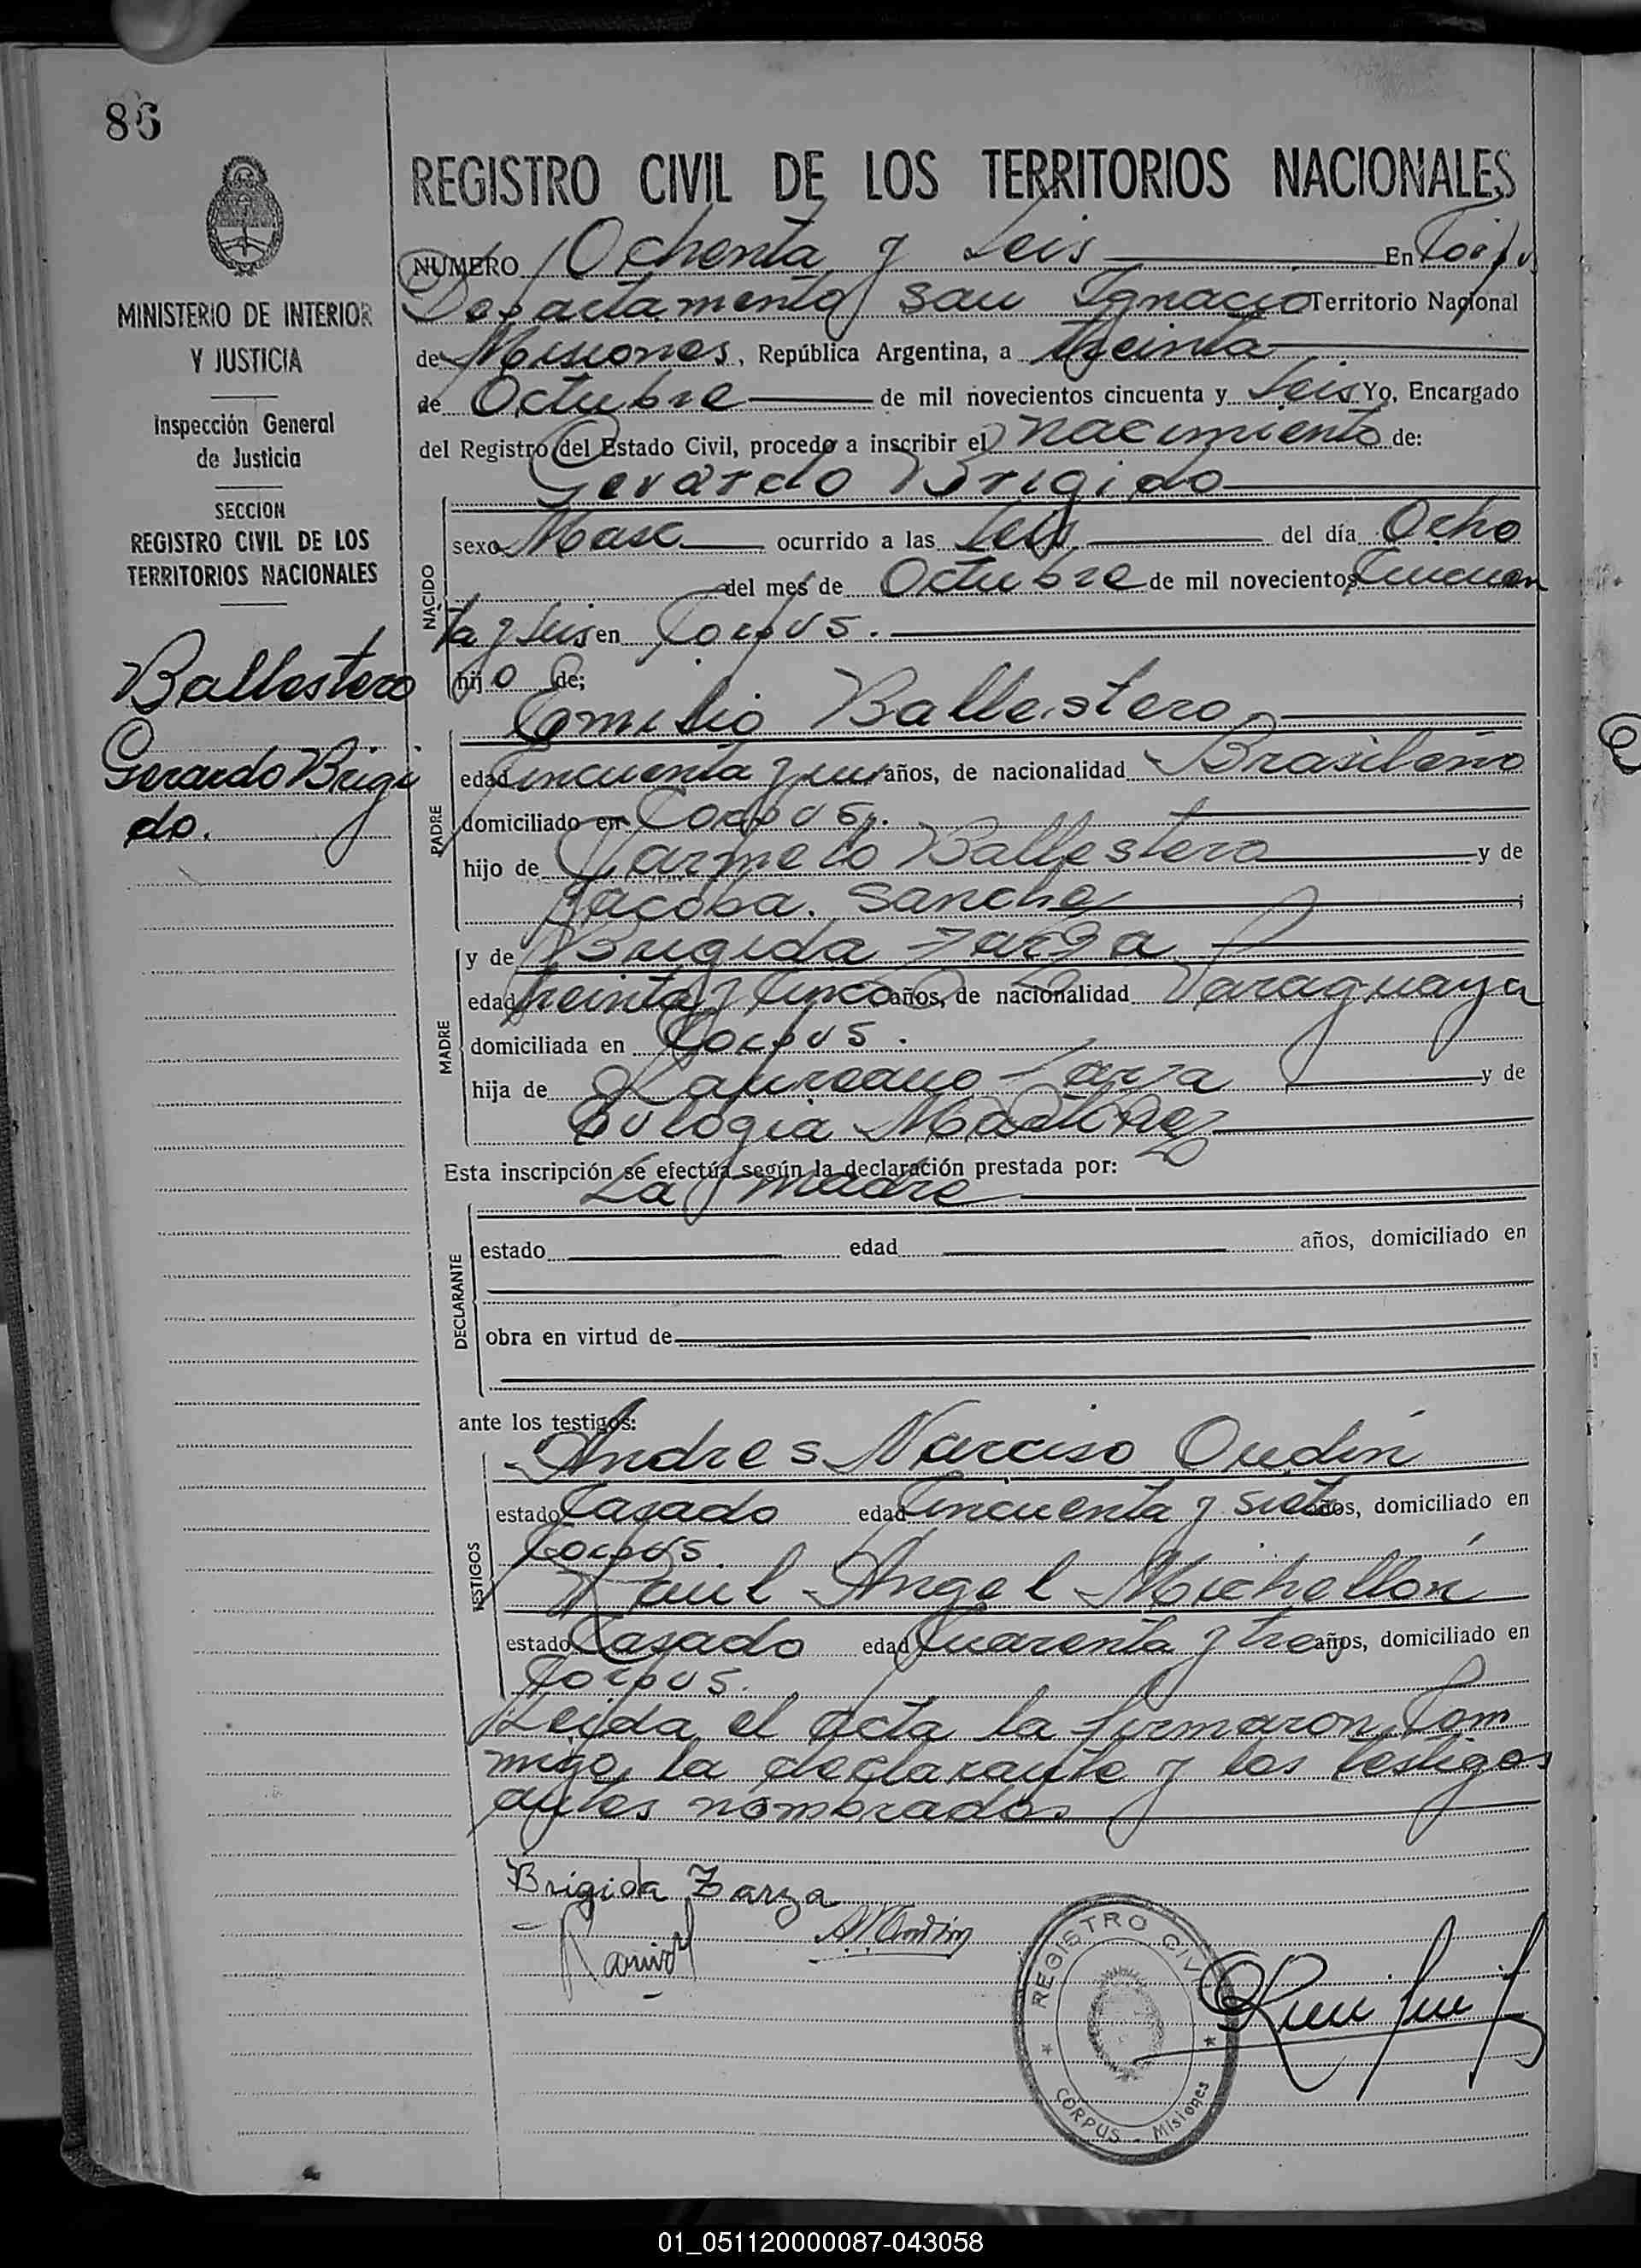 86
MINISTERIO DE INTERIOR
Y JUSTICIA
Inspección General
de Justicia
SECCION
REGISTRO CIVIL DE LOS
TERRITORIOS NACIONALES
Ballestero
Gerardo Brigi
do.
REGISTRO CIVIL DE LOS TERRITORIOS NACIONALES
NUMERO Ochenta y Seis En Corpus
Departamento San Ignacio Territorio Nacional
de Misiones, República Argentina, a treinta
de Octubre de mil novecientos cincuenta y Seis Yo, Encargado
del Registro del Estado Civil, procedo a inscribir el nacimiento de:
Gerardo Brigido
NACIDO
sexo Masc ocurrido a las seis del día Ocho
del mes de Octubre de mil novecientos Cincuen
ta y seis en Corpus.
hijo de;
Emilio Ballestero
PADRE
edad Cincuenta y un años, de nacionalidad Brasileño
domiciliado en Corpus.
hijo de Carmelo Ballestero y de
Jacoba. Sanchez;
MADRE
y de Brigida Zarza
edad treinta y Cinco años, de nacionalidad Paraguaya
domiciliada en Corpus.
hija de Laureano Zarza y de
Eulogia Martinez
Esta inscripción se efectúa según la declaración prestada por:
La madre
DECLARANTE
estado edad años, domiciliado en
obra en virtud de
ante los testigos:
TESTIGOS
Andres Narciso Oudin
estado Casado edad Cincuenta y siete años, domiciliado en
Corpus.
Raul Angel Michellón
estado Casado edad Cuarenta y tres años, domiciliado en
Corpus.
Leida el acta la firmaron Com
migo, la declarante y los testigos
antes nombrados
Brigida Zarza
REGISTRO CIVIL
CORPUS - Misiones
01_051120000087-043058